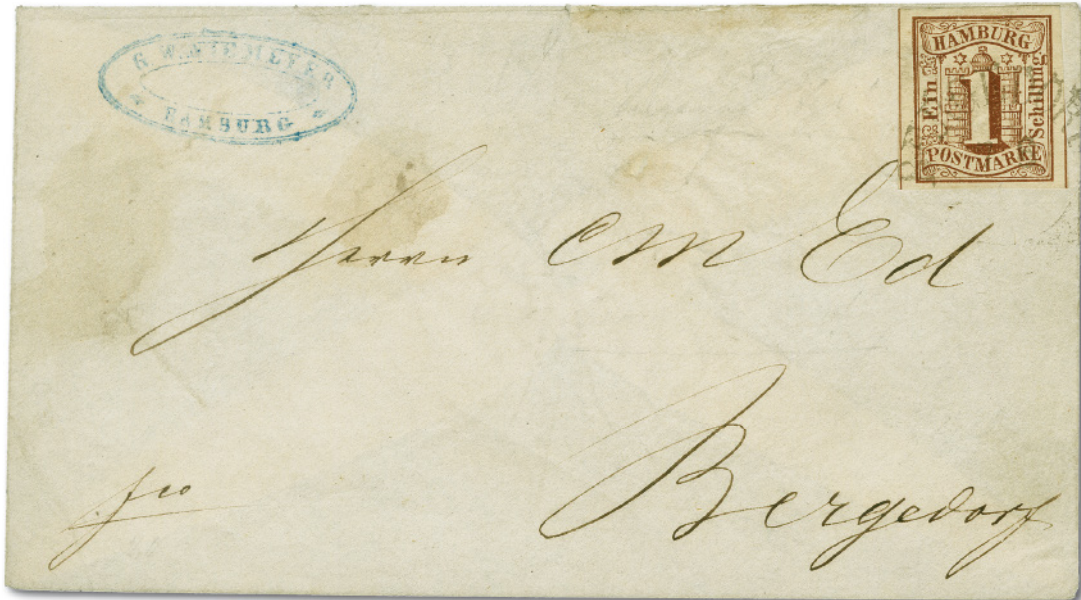 G. W. NIEMEYER
HAMBURG
HAMBURG
Ein
1
Schilling
POSTMARKE
Herrn CM Ed
fco
Bergedorf